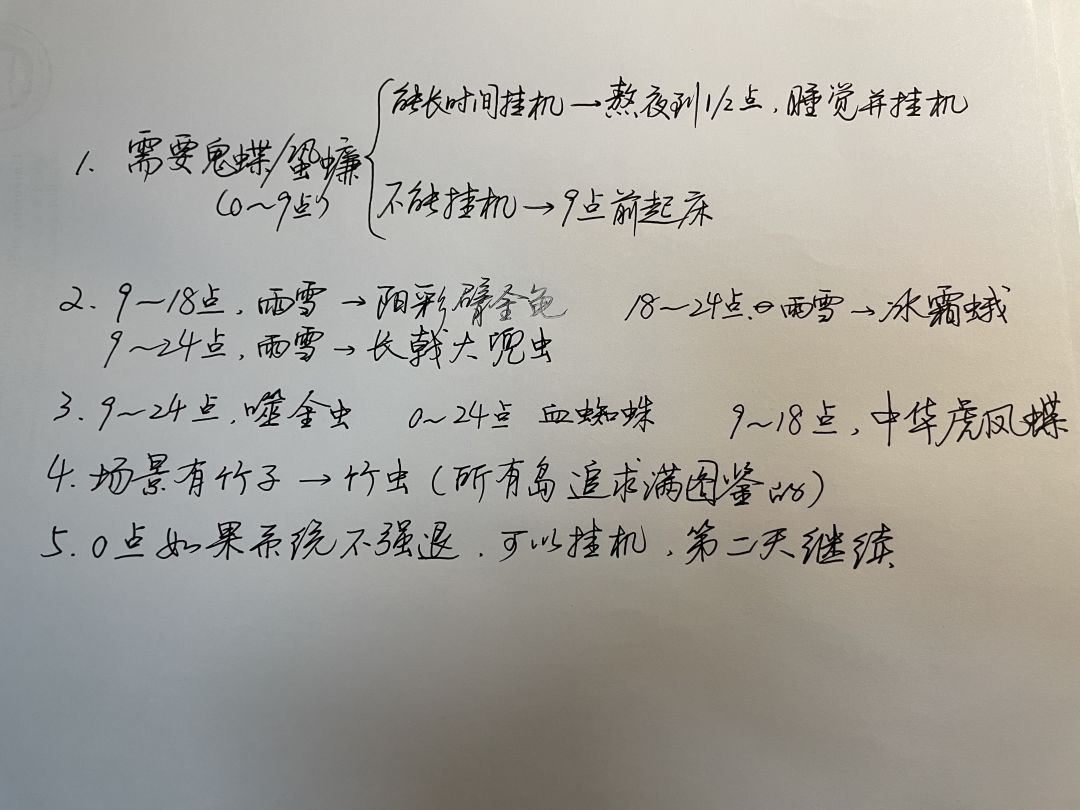 能长时间挂机→熬夜到1/2点,睡觉并挂机
1. 需要鬼蝶/蛩蠊
(0~9点)
不能挂机→9点前起床
2. 9~18点,雨雪→阳彩臂金龟 18~24点,雨雪→冰霜蛾
9~24点,雨雪→长戟大兜虫
3. 9~24点,噬金虫 0~24点 血蜘蛛 9~18点,中华虎凤蝶
4. 场景有竹子→竹虫(所有岛追求满图鉴的)
5. 0点如果系统不强退,可以挂机,第二天继续